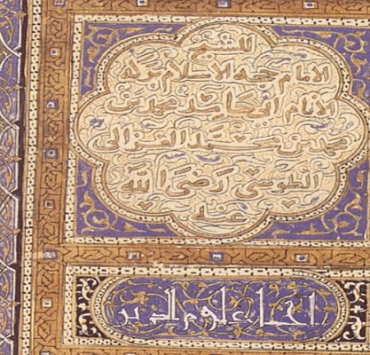 للشيخ
الامام حجة الاسلام بركة
الانام ابي حامد محمد بن
محمد بن محمد الغزالي
الطوسي رضي الله
عنه
احياء علوم الدين